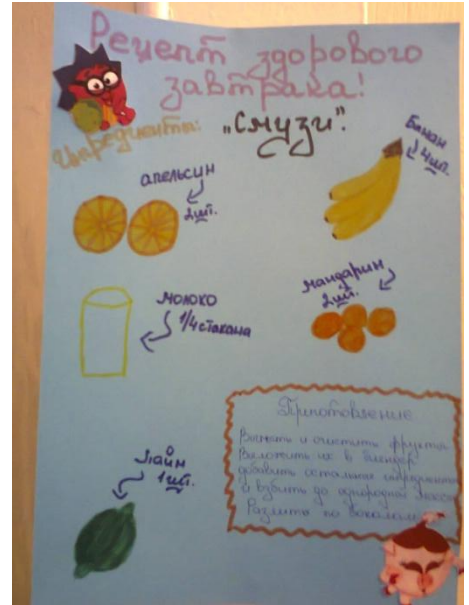 Рецепт здорового
завтрака!
Ингредиенты:
„Смузи".
апельсин
2шт.
Банан
4шт.
молоко
1/4 стакана
мандарин
2шт.
Лайм
1шт.
Приготовление
и очистить фрукты
Выложить их в блендер
добавить остальные ингредиенты
и взбить до однородной массы
Разлить по бокалам